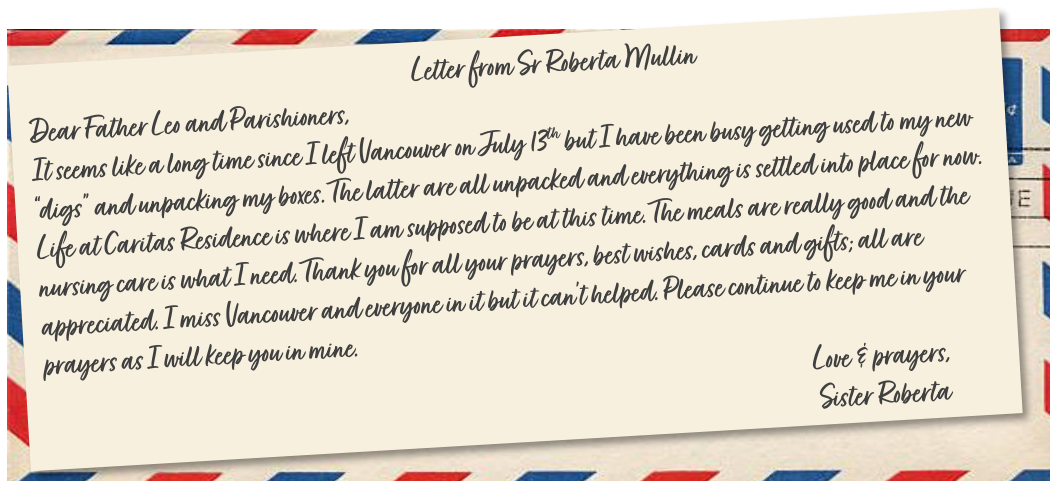 Letter from Sr Roberta Mullin
Dear Father Leo and Parishioners,
It seems like a long time since I left Vancouver on July 13th but I have been busy getting used to my new
"digs" and unpacking my boxes. The latter are all unpacked and everything is settled into place for now.
Life at Caritas Residence is where I am supposed to be at this time. The meals are really good and the
nursing care is what I need. Thank you for all your prayers, best wishes, cards and gifts; all are
appreciated. I miss Vancouver and everyone in it but it can't helped. Please continue to keep me in your
prayers as I will keep you in mine.
Love & prayers,
Sister Roberta
¢